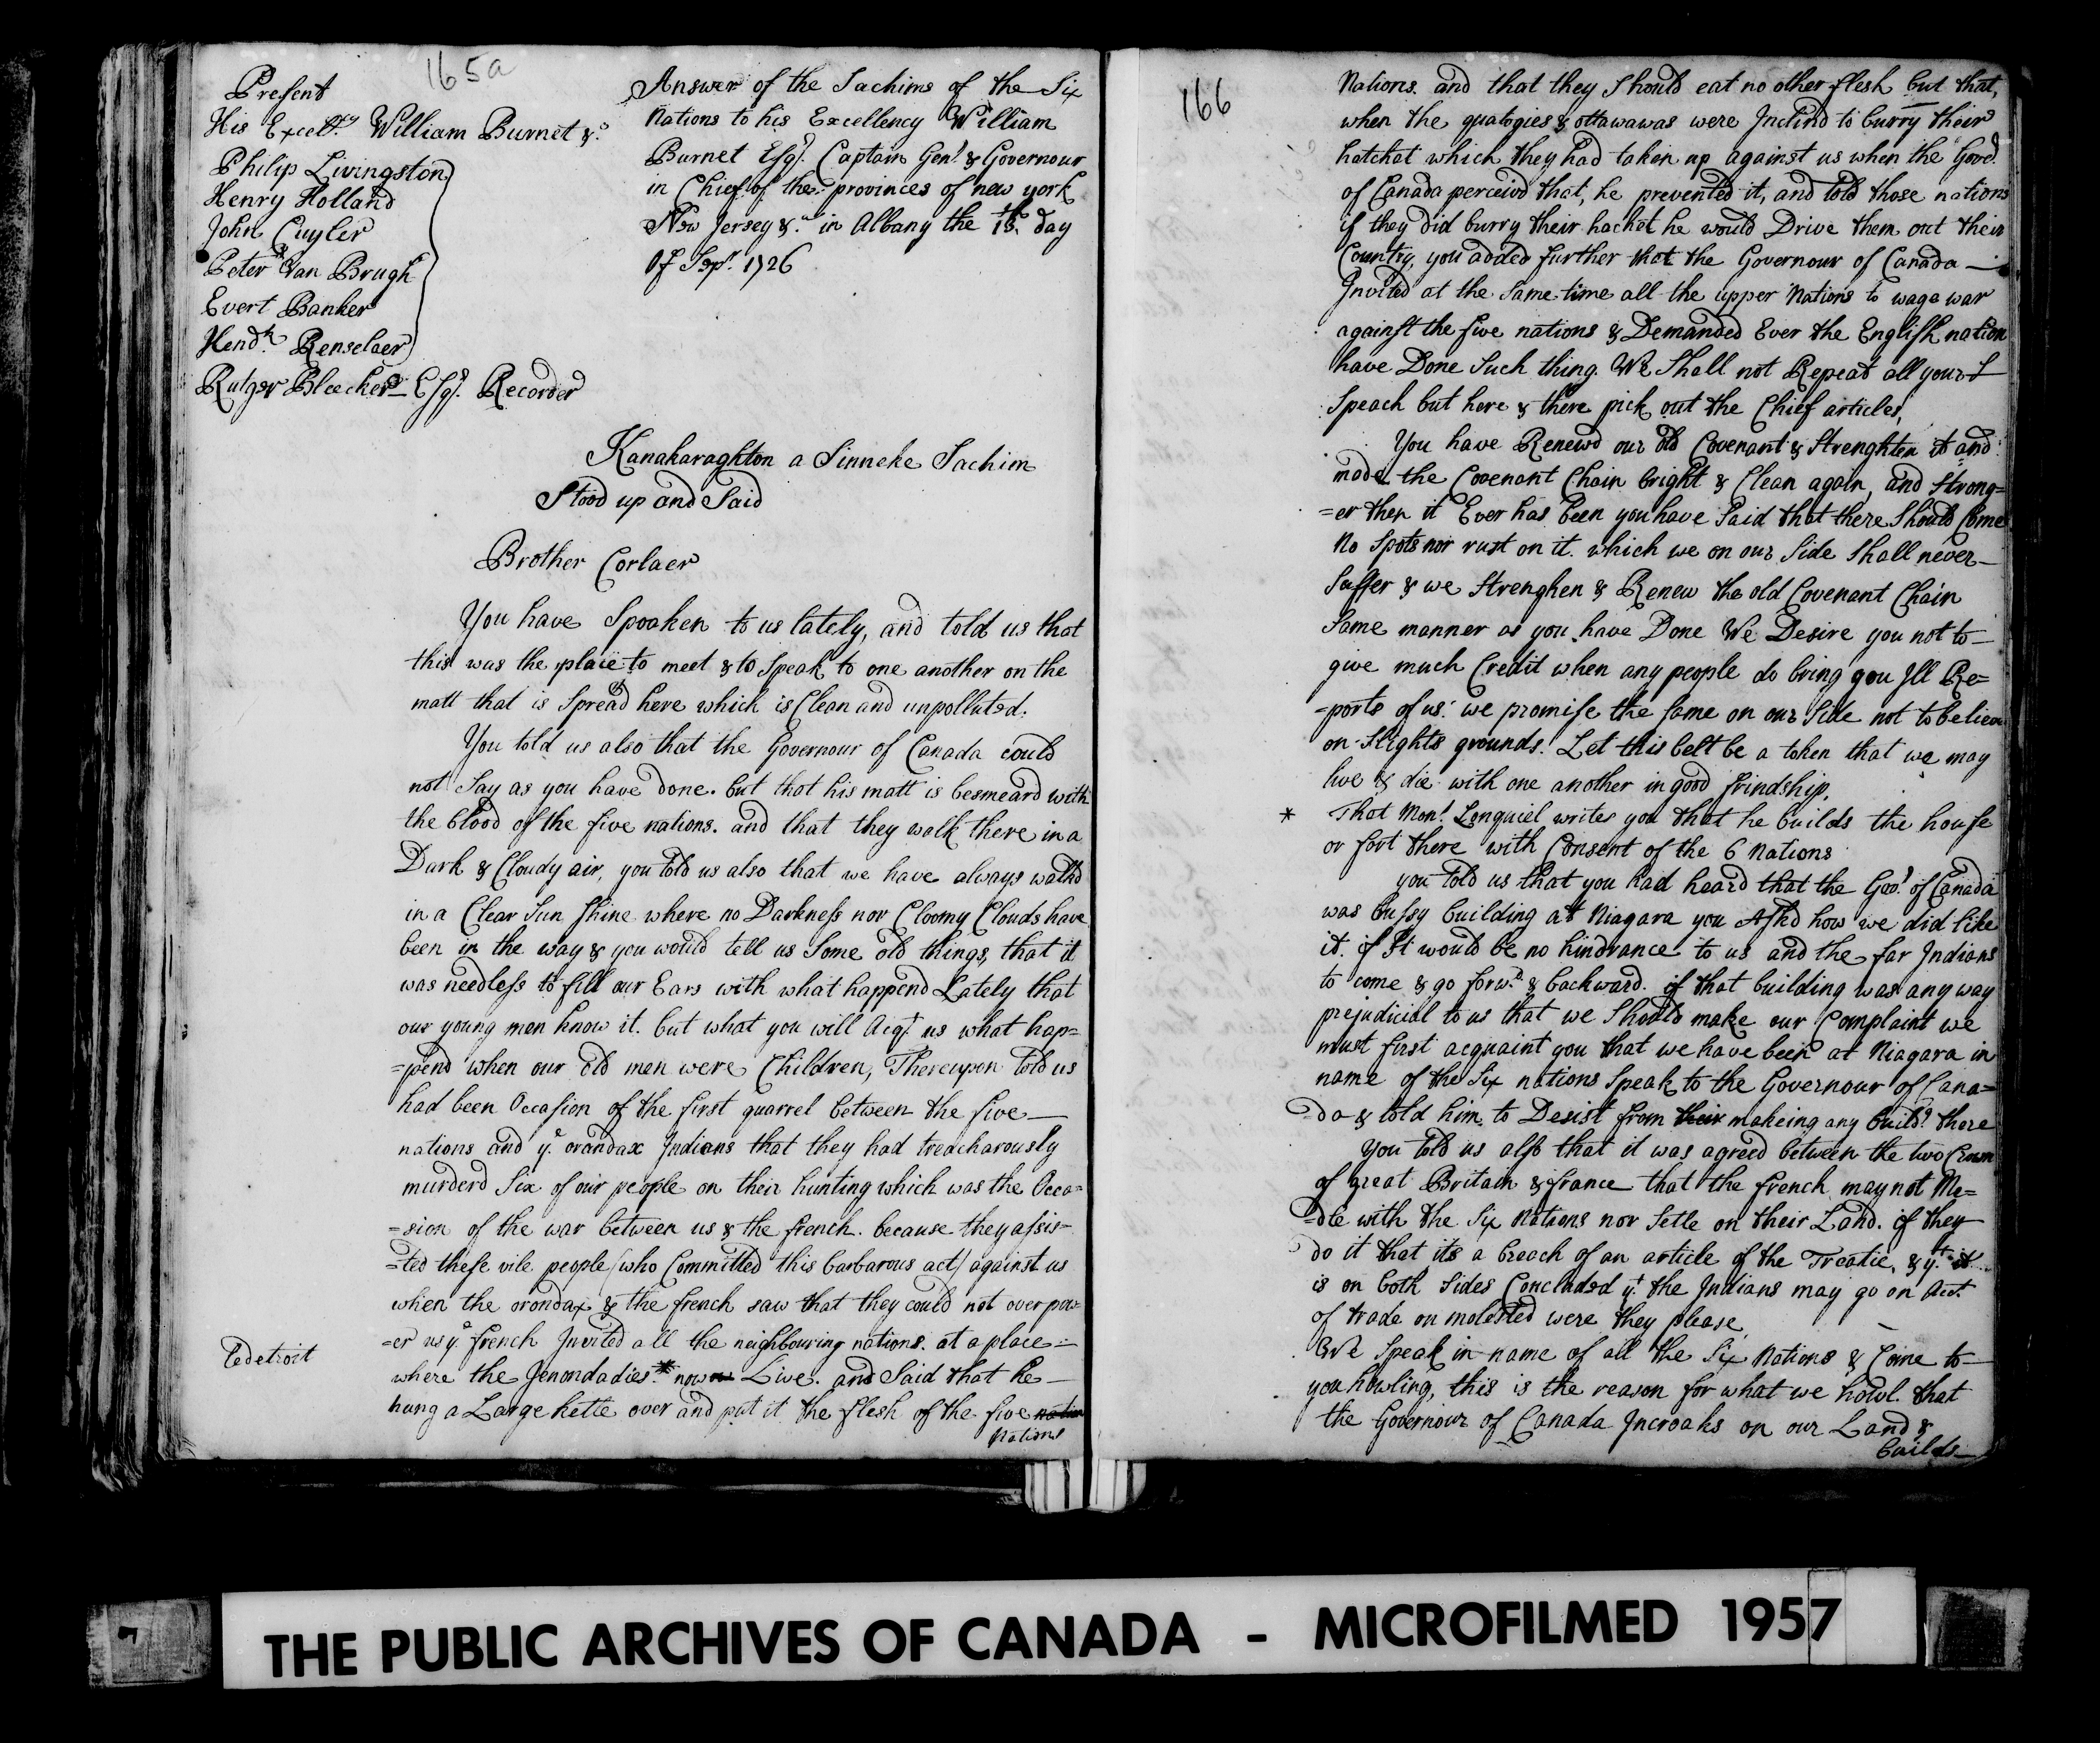 165a
Present
His Excel.ty William Burnet &c
Philip Livingston
Henry Holland
John Cuyler
Peter Van Brugh
Evert Banker
Hend.k Renselaer
Rutger Bleecker Esq.r Recorder
Answer of the Sachims of the Six
Nations to his Excellency William
Burnet Esq.r Captain Gen.l & Governour
in Chief of the provinces of new york
New Jersey &c in Albany the day
Of Sep.r 1726
Kanakaraghton a Sinneke Sachim
Stood up and Said
Brother Corlaer
You have Spoaken to us lately, and told us that
this was the place to meet & to Speak to one another on the
matt that is Spread here which is Clean and unpolluted.
You told us also that the Governour of Canada could
not Say as you have done. but that his matt is besmeard with
the blood of the five nations. and that they walk there in a
Dark & Cloudy air, you told us also that we have always walkd
in a Clear Sun Shine where no Darkness nor Cloomy Clouds have
been in the way & you would tell us Some old things, that it
was needless to fill our Ears with what happend Lately that
our young men know it. but what you will Acq.t us what hap=
=pend when our old men were Children, Thereupon told us
had been Occasion of the first quarrel between the five
nations and y.e orondax Indians that they had treacharously
murderd Six of our people on their hunting which was the Occa=
=sion of the war between us & the french. because they assis=
=ted these vile people (who Committed this barbarous act) against us
when the orondax & the french saw that they could not over pow=
=er us y.e french Invited all the neighbouring nations. at a place
Tedetroit
where the Jenondadies * now Live. and Said that he
hung a Large kettle over and put it the flesh of the five nation
Nations
166
Nations. and that they Should eat no other flesh but that,
when the qualogies & ottawawas were Inclind to burry their
hatchet which they had taken up against us when the Gov.r
of Canada perceivd that, he prevented it, and told those nations
if they did burry their hachet he would Drive them out their
Country, you added further that the Governour of Canada
Invited at the Same time all the upper Nations to wage war
against the five nations & Demanded Ever the English nation
have Done Such thing. We Shall not Repeat all your
Speach but here & there pick out the Chief articles,
You have Renewd our old Covenant & Strenghten it and
made the Covenant Chain bright & Clean again, and Strong=
=er then it Ever has been you have Said that there Should Come
No Spots nor rust on it. which we on our Side Shall never
Suffer & we Strenghen & Renew the old Covenant Chain
Same manner as you have Done We Desire you not to
give much Credit when any people do bring you Ill Re=
=ports of us. we promise the Same on our Side not to believe
on Slights grounds. Let this belt be a token that we may
live & die with one another in good frindship,
* That Mon.r Longuiel writes you that he builds the house
or fort there with Consent of the 6 Nations
you told us that you had heard that the Gov.r of Canada
was bussy building at Niagara you Askd how we did like
it. if It would be no hindrance to us and the far Indians
to come & go forw.d & backward. if that building was any way
prejudicial to us that we Should make our Complaint we
must first acquaint you that we have been at Niagara in
name of the Six nations Speak to the Governour of Cana=
=da & told him to Desist from their makeing any build.g there
You told us also that it was agreed between the two Crown
of great Britain & france that the french may not Me=
=dle with the Six Nations nor Setle on their Land. if they
do it that its a breach of an article of the Treatie, & y.t it
is on both Sides Concluded y.t the Indians may go on Acct.
of trade on molested were they please
We Speak in name of all the Six Nations & Come to
you howling, this is the reason for what we howl. that
the Governour of Canada Incroaks on our Land &
builds
THE PUBLIC ARCHIVES OF CANADA - MICROFILMED 1957